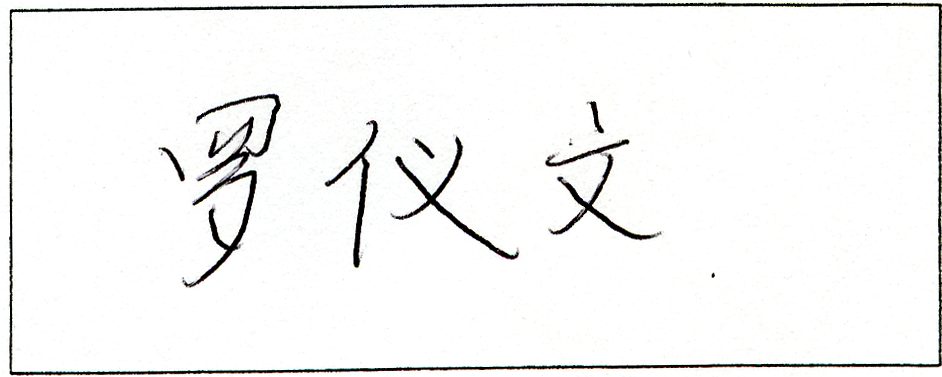 罗仪文